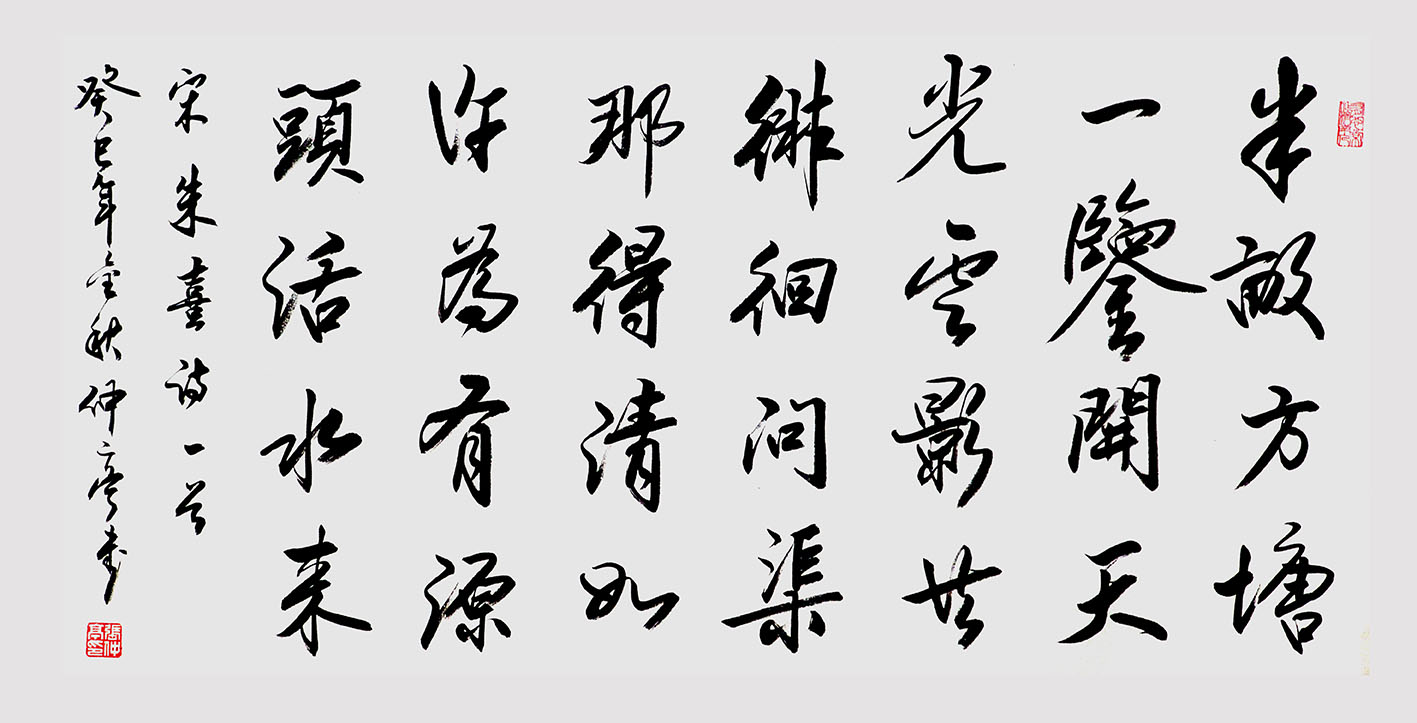 半畝方塘
一鑒開天
光雲影共
徘徊問渠
那得清如
許為有源
頭活水来
宋朱熹詩一首
癸巳年金秋仲亭书